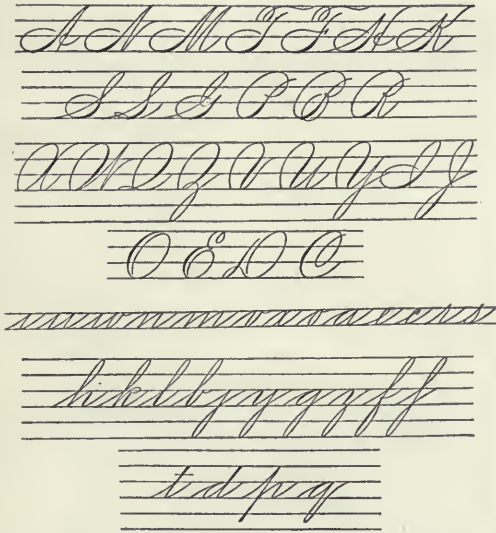 A N M T F H K
S L G P B R
X W Q Z V U Y I J
O E D C
i u w n m x v o a e c r s
h k l b j y g z f f
t d p q